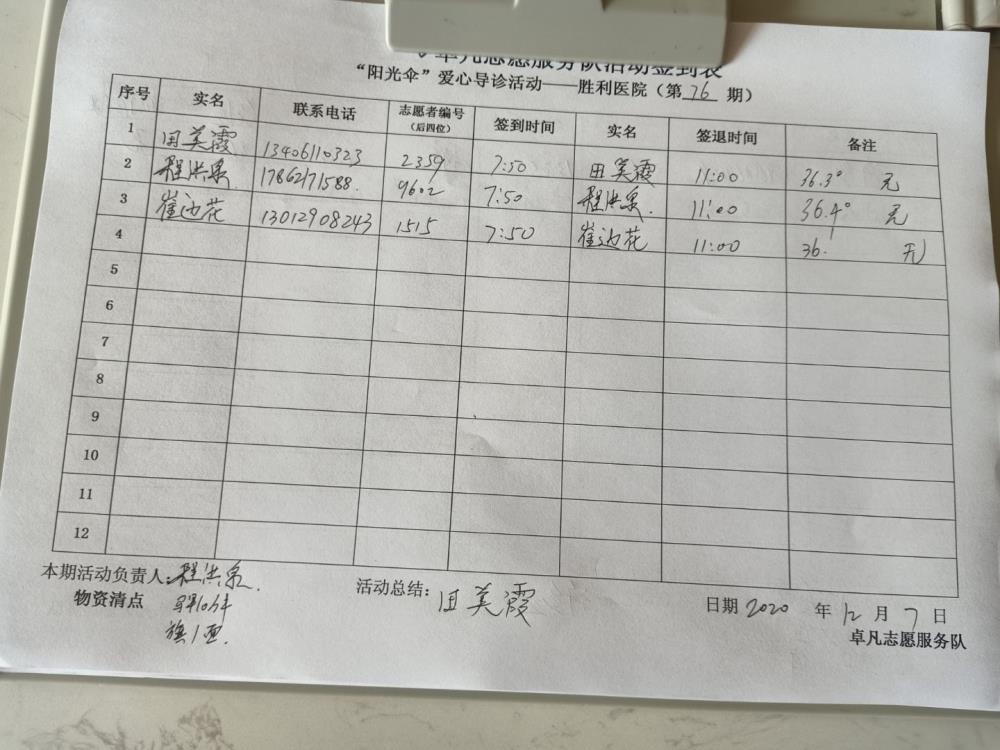 卓凡志愿服务队活动签到表
“阳光伞”爱心导诊活动——胜利医院（第 76 期）
序号 实名 联系电话 志愿者编号（后四位） 签到时间 实名 签退时间 备注
1 田美霞 13406110323 2359 7:50 田美霞 11:00 36.3° 无
2 程洪泉 17862171588. 9602 7:50 程洪泉. 11:00 36.4° 无
3 崔边花 13012908243 1515 7:50 崔边花 11:00 36. 无
4
5
6
7
8
9
10
11
12
本期活动负责人：程洪泉. 活动总结：田美霞 日期 2020 年 12 月 7 日
物资清点
旗1面.
卓凡志愿服务队